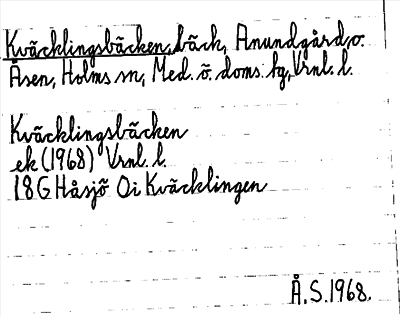 Kväcklingsbäcken, bäck, Anundgård, o.
Åsen, Holms sn, Med. ö. doms. hg, Vrnl. l.
Kväcklingsbäcken
ek (1968) Vrnl. l.
18G Håsjö Oi Kväcklingen
Å.S. 1968.